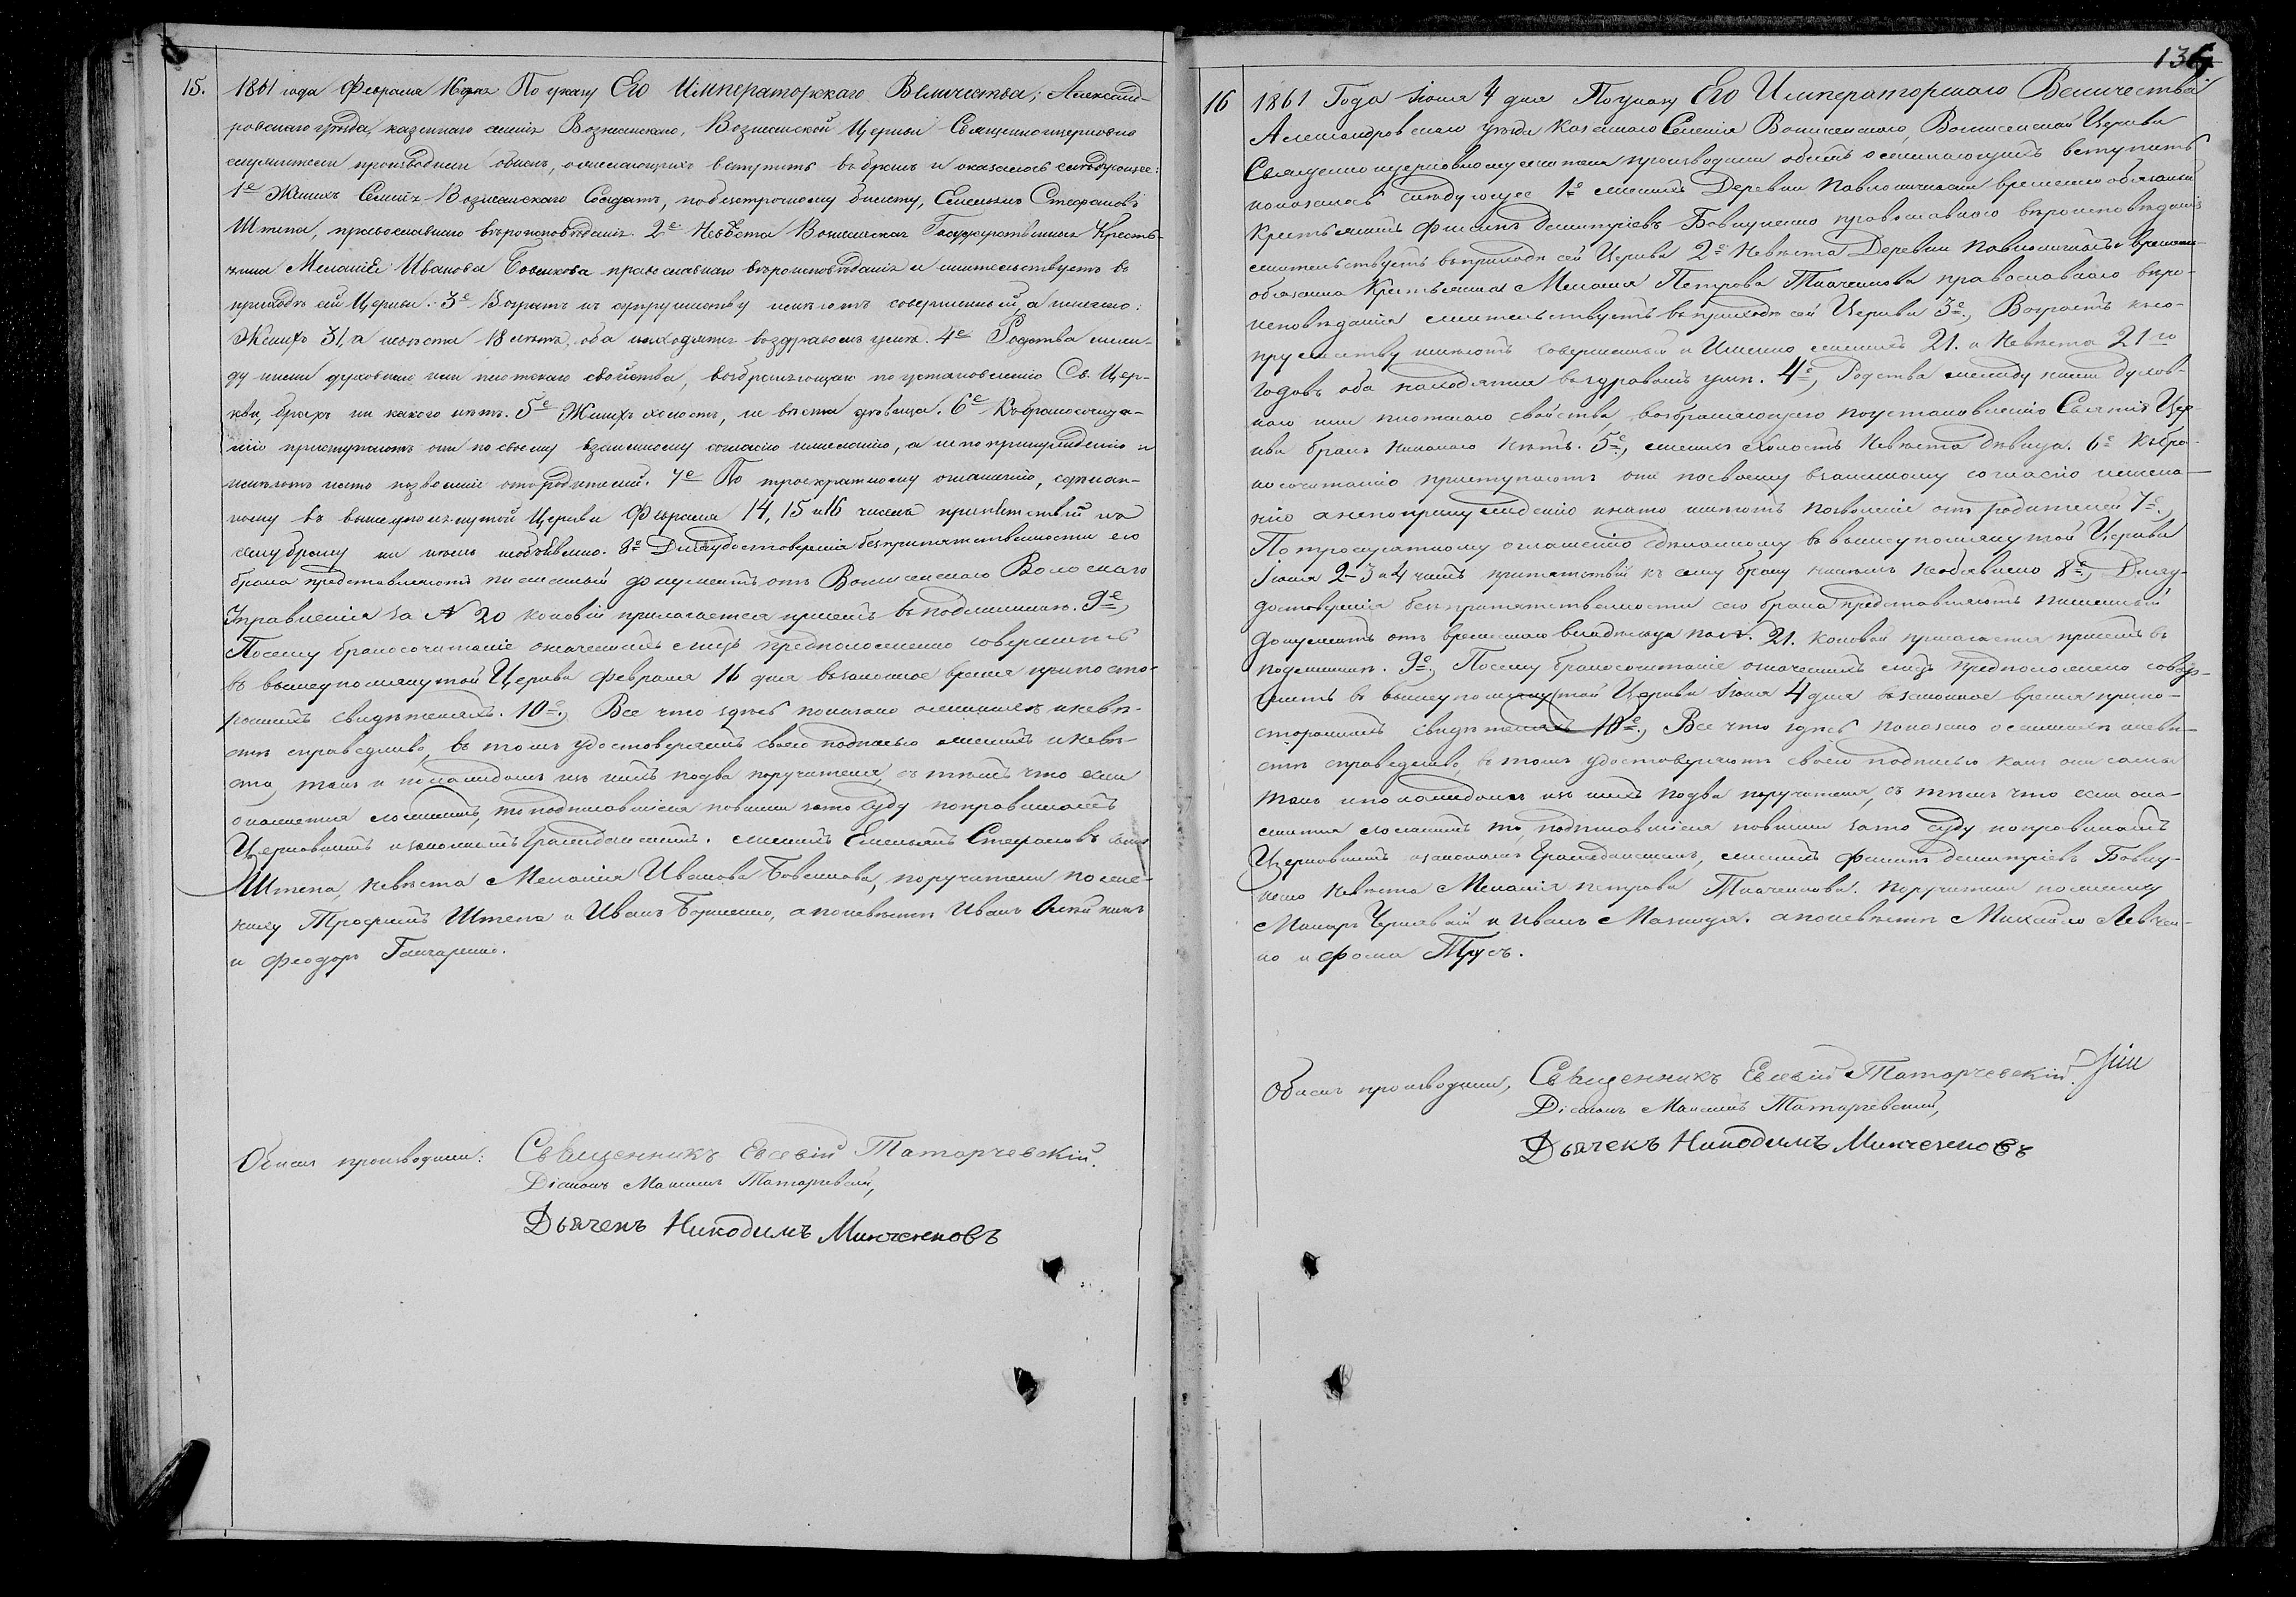 15.
1861 года Февраля 16 дня По указу Его Императорскаго Величества; Александ-
ровскаго уѣзда, казеннаго селенія Вознесенскаго, Вознесенской Церкви Священноцерковно
служители производили обыскъ, о желающихъ вступить въ бракъ и оказалось слѣдующее:
1е Женихъ Селенія Вознесенскаго Солдатъ, по безсрочному билету, Емельянъ Стефановъ
Штепа, православнаго вѣроисповѣданія. 2е Невѣста Вознесенская Государственная Кресть-
янка Меланія Иванова Бовенкова православнаго вѣроисповѣданія и жительствуетъ въ
приходѣ сей Церкви. 3е Возрастъ къ супружеству имѣютъ совершенный, а именно:
Женихъ 31, а невѣста 18 лѣтъ, оба находятся въ здравомъ умѣ. 4е Родства меж-
ду ними духовнаго или плотскаго свойства, возбраняющаго по установленію Св. Цер-
кви, бракъ ни какого нѣтъ. 5е Женихъ холостъ, невѣста дѣвица. 6е Къ бракосочета-
нію приступаютъ они по своему взаимному согласію и желанію, а не по принужденію и
имѣютъ на то позволеніе отъ родителей. 7е По троекратному оглашенію, сдѣлан-
ному въ вышеупомянутой Церкви Февраля 14, 15 и 16 чиселъ препятствій къ
сему браку ни кѣмъ необъявлено. 8е Для удостовѣренія безпрепятственности сего
брака представляютъ письменный документъ отъ Вознесенскаго Волоснаго
Управленія за N 20 коковій прилагается присемъ въ подлинникѣ. 9е,
Посему бракосочитаніе означенныхъ лицъ предположенно совершить
въ вышеупомянутой Церкви Февраля 16 дня въ законное время при посто-
роннихъ свидѣтеляхъ. 10е, Все что здѣсь показано о женихѣ и невѣ-
стѣ справедливо, въ томъ удостовѣряютъ своею подписью женихъ и невѣ-
ста, такъ и по каждомъ изъ нихъ по два поручителя, съ тѣмъ что если
окажется ложнымъ, то подписавшіеся повинны за то суду по правиламъ
Церковнымъ и законамъ Гражданскимъ. женихъ Емельянъ Стефановъ сынъ
Штепа, невѣста Меланія Иванова Бовенкова, поручители по жени-
ху Трофимъ Штепа и Иванъ Борщенко, а по невѣстѣ Иванъ
и Феодоръ Ганчаренко.
Обыскъ производили: Священникъ Евсевій Татарчевскій.
Діаконъ Максимъ Татарчевскій,
Дьячекъ Никодимъ Минченковъ
136
16
1861 Года Іюня 4 дня По указу Его Императорскаго Величества
Александровскаго уѣзда Казеннаго Селенія Вознесенскаго, Вознесенской Церкви
Священно церковнослужители производили обыскъ о желающихъ вступить
и оказалось слѣдующее 1е женихъ Деревни Павлокичкасъ временно обязанный
Крестьянинъ Филипъ Демитріевъ Бовкуненко православнаго вѣроисповѣданія
жительствуетъ въ приходѣ сей Церкви 2е Невѣста Деревни Павлокичкасъ временно-
обязанна Крестьянка Меланія Петрова Ткаченкова православнаго вѣро-
исповѣданія жительствуетъ въ приходѣ сей Церкви 3е, Возрастъ къ со-
пружеству имѣютъ совершенный и Именно женихъ 21. а Невѣста 21 го
годовъ оба находятся въ здравомъ умѣ. 4е, Родства между ними духов-
наго или плотскаго свойства, возбраняющаго по установленію Святія Цер-
кви бракъ никакого Нѣтъ. 5е, женихъ холостъ Невѣста дѣвица. 6е Къ бра-
косочитанію приступаютъ они по своему взаимному согласію и жела-
нію а не по принужденію и на то имѣютъ позволеніе отъ родителей 7е,
По троекратному оглашенію сдѣланному въ вышеупомянутой Церкви
Іюня 2-3 и 4 числъ препятствій къ сему браку никѣмъ необъявлено 8е, Для у-
достовѣренія безпрепятственности сего брака представляютъ письменный
документъ отъ временаго владѣльца за N. 21. коковой прилагается присемъ въ
подлинникѣ. 9е, Посему бракосочитаніе означенныхъ лицъ предположено совер-
шить въ вышеупомянутой Церкви Іюня 4 дня въ законное время при по-
стороннихъ свидѣтеляхъ 10е, Все что здѣсь показано о женихѣ и невѣ-
стѣ справедливо, въ томъ удостовѣряютъ своею подписью какъ они сами
такъ и по каждомъ изъ нихъ по два поручителя, съ тѣмъ что если ока-
жится ложнымъ то, подписавшіеся повинни за то суду по правиламъ
Церковнымъ и законамъ Гражданскимъ, женихъ Филипъ Демитріевъ Бовку-
ненко Невѣста Меланія Петрова Ткаченкова. поручители по жениху
Макаръ Чернявій и Иванъ Мазницa. а по невѣстѣ Михайло Левчен-
ко и Фома Трусъ.
Обыскъ производили, Священникъ Евсевій Татарчевскій.
Діаконъ Максимъ Татарчевскій,
Дьячекъ Никодимъ Минченковъ